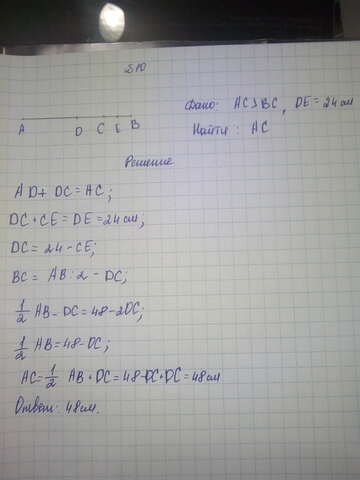 210
Дано: AC > BC, DE = 24 см
Найти: AC
A D C E B
Решение
AD + DC = AC;
DC + CE = DE = 24 см;
DC = 24 - CE;
BC = AB : 2 - DC;
1/2 AB - DC = 48 - 2DC;
1/2 AB = 48 - DC;
AC = 1/2 AB + DC = 48 - DC + DC = 48 см
Ответ: 48 см.